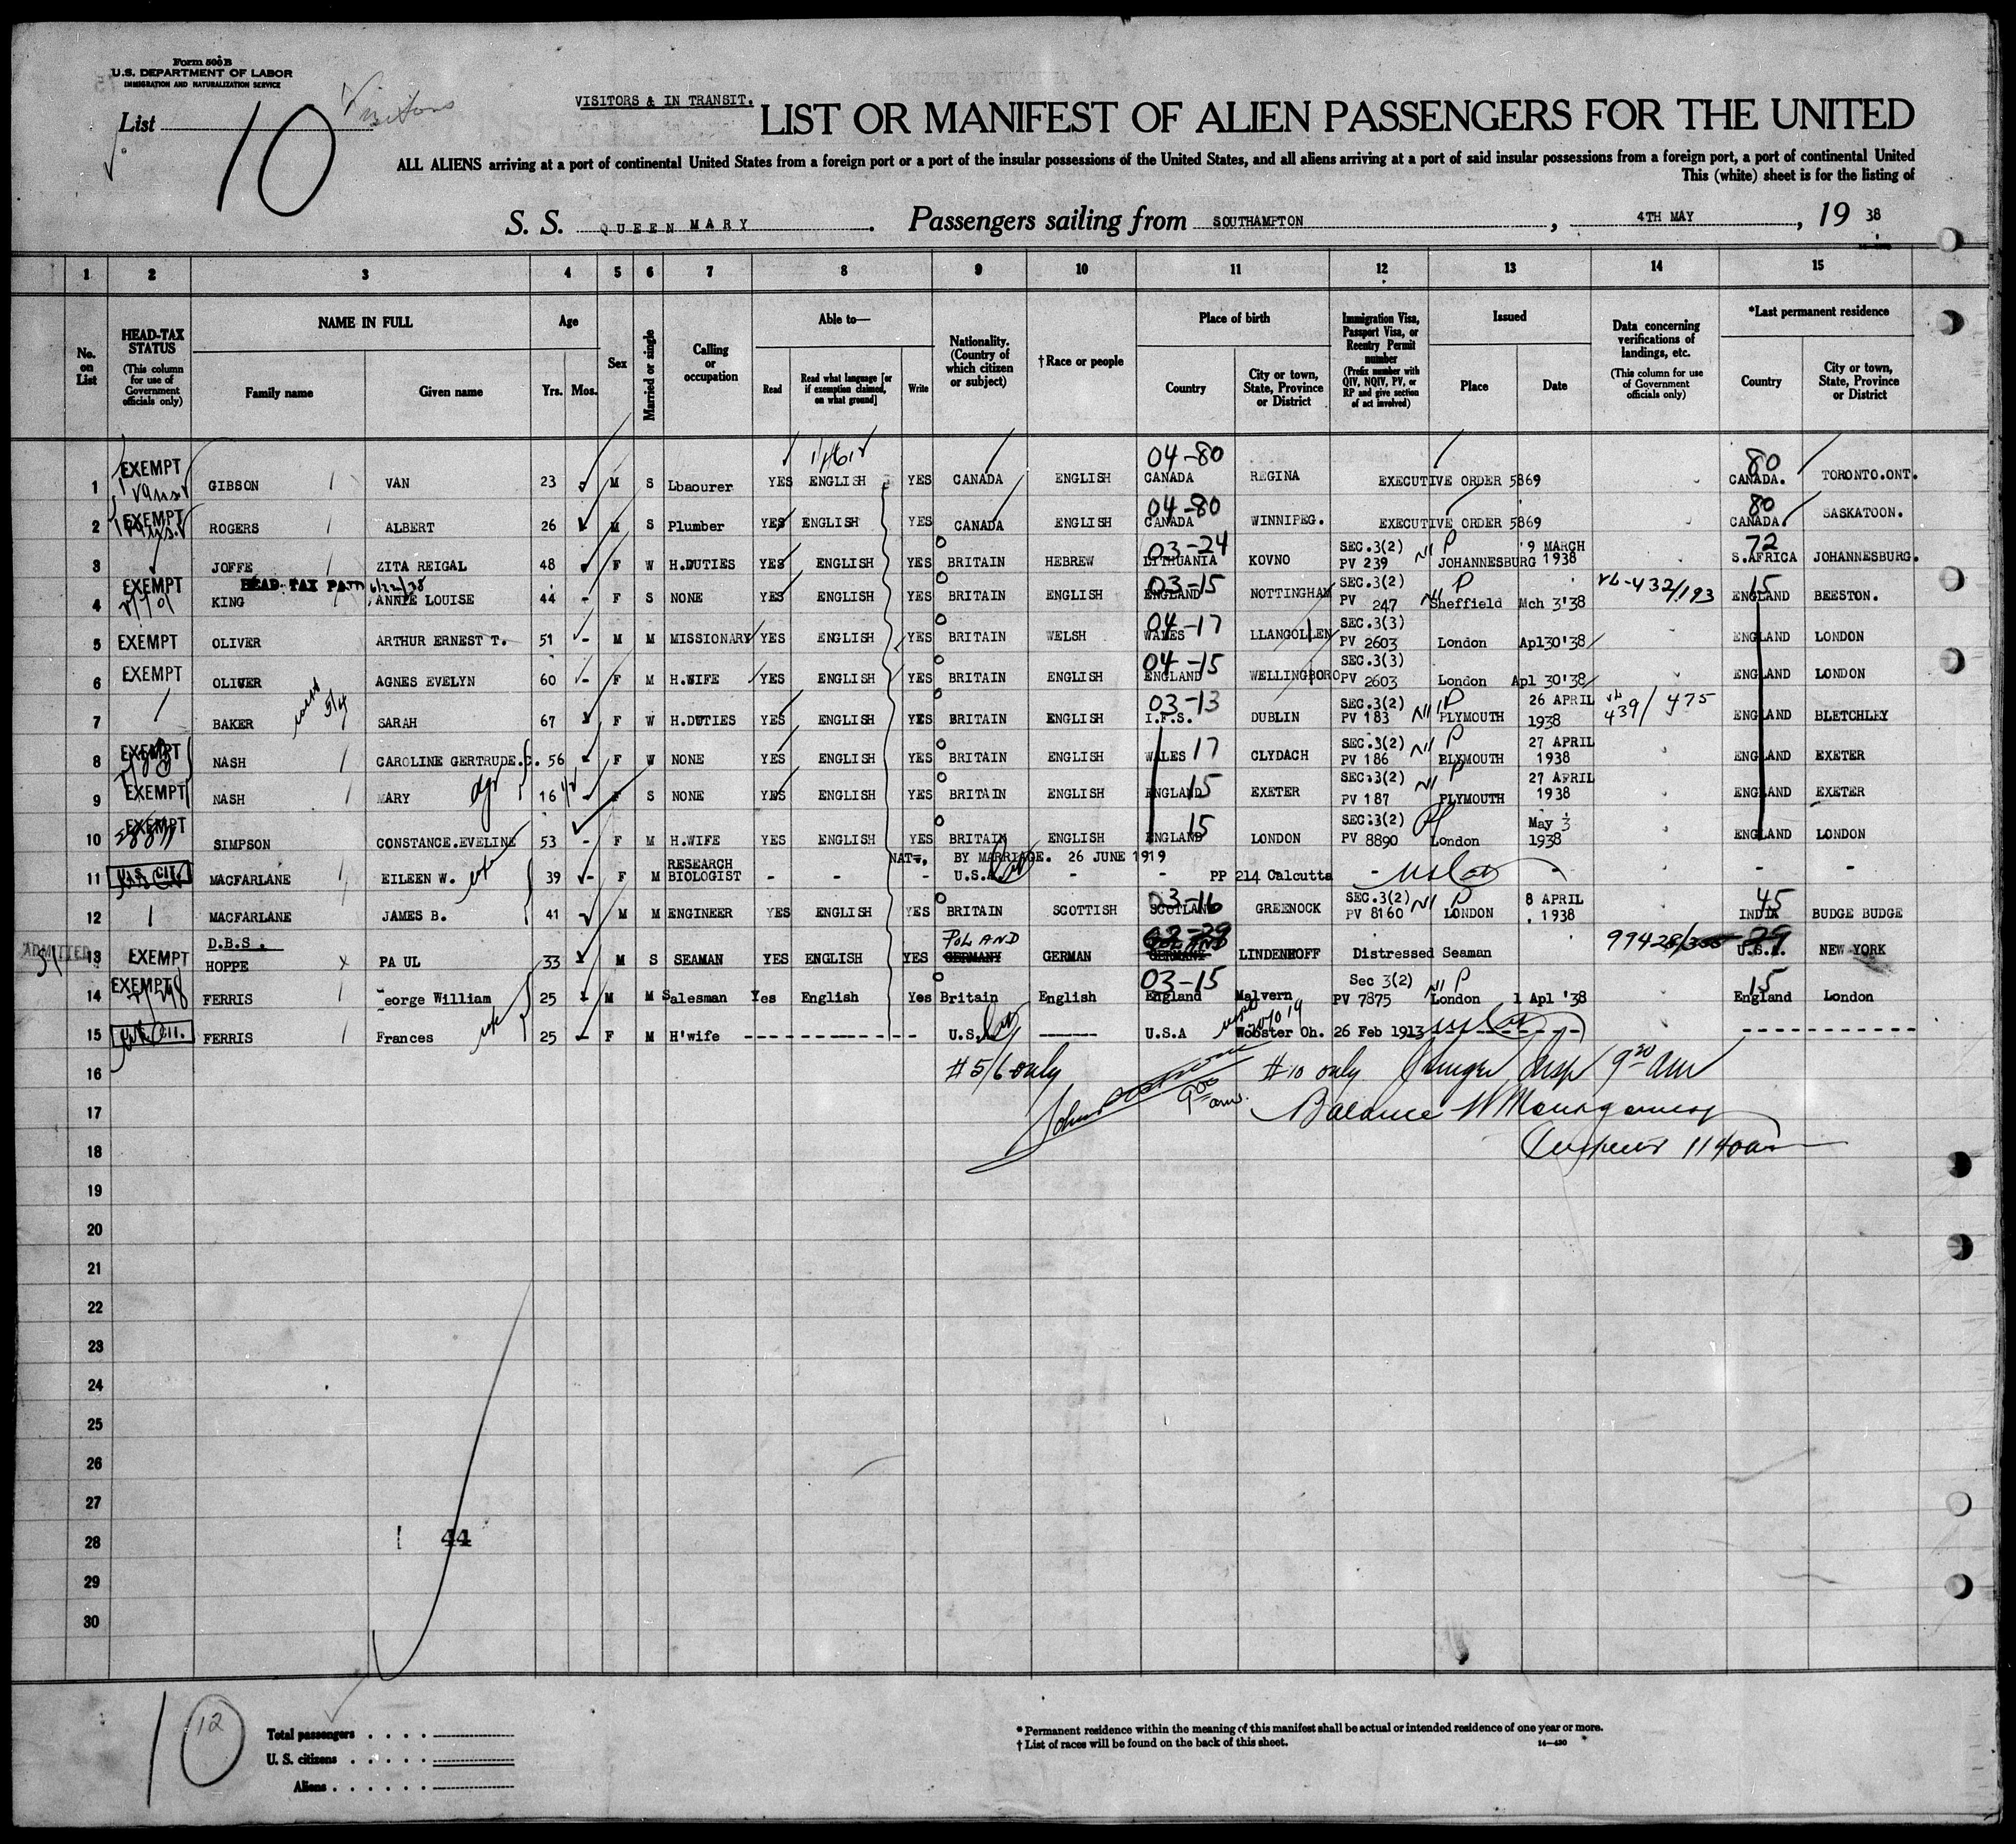 Form 500 B
U.S. DEPARTMENT OF LABOR
IMMIGRATION AND NATURALIZATION SERVICE
List 10 Visitors
VISITORS & IN TRANSIT.
LIST OR MANIFEST OF ALIEN PASSENGERS FOR THE UNITED
ALL ALIENS arriving at a port of continental United States from a foreign port or a port of the insular possessions of the United States, and all aliens arriving at a port of said insular possessions from a foreign port, a port of continental United
This (white) sheet is for the listing of
S. S. QUEEN MARY. Passengers sailing from SOUTHAMPTON, 4TH MAY, 19 38
1 2 3 4 5 6 7 8 9 10 11 12 13 14 15
No. on List
HEAD-TAX STATUS (This column for use of Government officials only)
NAME IN FULL
Family name Given name
Age
Yrs. Mos.
Sex
Married or single
Calling or occupation
Able to—
Read Read what language [or if exemption claimed, on what ground] Write
Nationality. (Country of which citizen or subject)
†Race or people
Place of birth
Country City or town, State, Province or District
Immigration Visa, Passport Visa, or Reentry Permit number (Prefix number with QIV, NQIV, PV, or RP and give section of act involved)
Issued
Place Date
Data concerning verifications of landings, etc. (This column for use of Government officials only)
*Last permanent residence
Country City or town, State, Province or District
04-80 80
1 EXEMPT GIBSON VAN 23 M S Lbaourer YES ENGLISH YES CANADA ENGLISH CANADA REGINA EXECUTIVE ORDER 5869 CANADA. TORONTO.ONT.
04-80 80
2 EXEMPT ROGERS ALBERT 26 M S Plumber YES ENGLISH YES CANADA ENGLISH CANADA WINNIPEG. EXECUTIVE ORDER 5869 CANADA. SASKATOON.
03-24 SEC.3(2) NII P 9 MARCH 72
3 JOFFE ZITA REIGAL 48 F W H.DUTIES YES ENGLISH YES BRITAIN HEBREW LITHUANIA KOVNO PV 239 JOHANNESBURG 1938 S.AFRICA JOHANNESBURG.
EXEMPT HEAD-TAX PAID 6/22/38 03-15 SEC.3(2) NII P 432/193 15
4 KING ANNIE LOUISE 44 - F S NONE YES ENGLISH YES BRITAIN ENGLISH ENGLAND NOTTINGHAM PV 247 Sheffield Mch 3'38 ENGLAND BEESTON.
04-17 SEC.3(3)
5 EXEMPT OLIVER ARTHUR ERNEST T. 51 - M M MISSIONARY YES ENGLISH YES BRITAIN WELSH WALES LLANGOLLEN PV 2603 London Apl30'38 ENGLAND LONDON
04-15 SEC.3(3)
6 EXEMPT OLIVER AGNES EVELYN 60 - F M H.WIFE YES ENGLISH YES BRITAIN ENGLISH ENGLAND WELLINGBORO PV 2603 London Apl 30'38 ENGLAND LONDON
03-13 SEC.3(2) NII P 26 APRIL 439/475
7 BAKER SARAH 67 F W H.DUTIES YES ENGLISH YES BRITAIN ENGLISH I.F.S. DUBLIN PV 183 PLYMOUTH 1938 ENGLAND BLETCHLEY
17 SEC.3(2) NII P 27 APRIL
8 EXEMPT NASH CAROLINE GERTRUDE.C. 56 F W NONE YES ENGLISH YES BRITAIN ENGLISH WALES CLYDACH PV 186 BLYMOUTH 1938 ENGLAND EXETER
15 SEC:3(2) NII P 27 APRIL
9 EXEMPT NASH MARY dgr 16 F S NONE YES ENGLISH YES BRITAIN ENGLISH ENGLAND EXETER PV 187 PLYMOUTH 1938 ENGLAND EXETER
15 SEC:3(2) May 3
10 EXEMPT SIMPSON CONSTANCE.EVELINE 53 - F M H.WIFE YES ENGLISH YES BRITAIN ENGLISH ENGLAND LONDON PV 8890 London 1938 ENGLAND LONDON
RESEARCH NAT=, BY MARRIAGE. 26 JUNE 1919
11 U.S. CIT. MACFARLANE EILEEN W. wife 39 - F M BIOLOGIST - - - U.S.A. - - PP 214 Calcutta - - - -
03-16 SEC.3(2) NII P 8 APRIL 45
12 MACFARLANE JAMES B. 41 M M ENGINEER YES ENGLISH YES BRITAIN SCOTTISH SCOTLAND GREENOCK PV 8160 LONDON 1938 INDIA BUDGE BUDGE
ADMITTED D.B.S. POLAND POLAND 99428/ 29
13 EXEMPT HOPPE PAUL 33 M S SEAMAN YES ENGLISH YES GERMANY GERMAN GERMANY LINDENHOFF Distressed Seaman U.S.A. NEW YORK
03-15 Sec 3(2) NII P 15
14 EXEMPT FERRIS George William 25 M M Salesman Yes English Yes Britain English England Malvern PV 7875 London 1 Apl '38 England London
15 U.S. CIT. FERRIS Frances wife 25 - F M H'wife U.S.A U.S.A Wooster Oh. 26 Feb 1913
16 #5/6 only #10 only Insp 9 30 am
17 9 00 am. Balance W Montgomery
18 Inspector 11 40 am
19
20
21
22
23
24
25
26
27
28 44
29
30
10 12
Total passengers
U. S. citizens
Aliens
* Permanent residence within the meaning of this manifest shall be actual or intended residence of one year or more.
† List of races will be found on the back of this sheet. 14—430